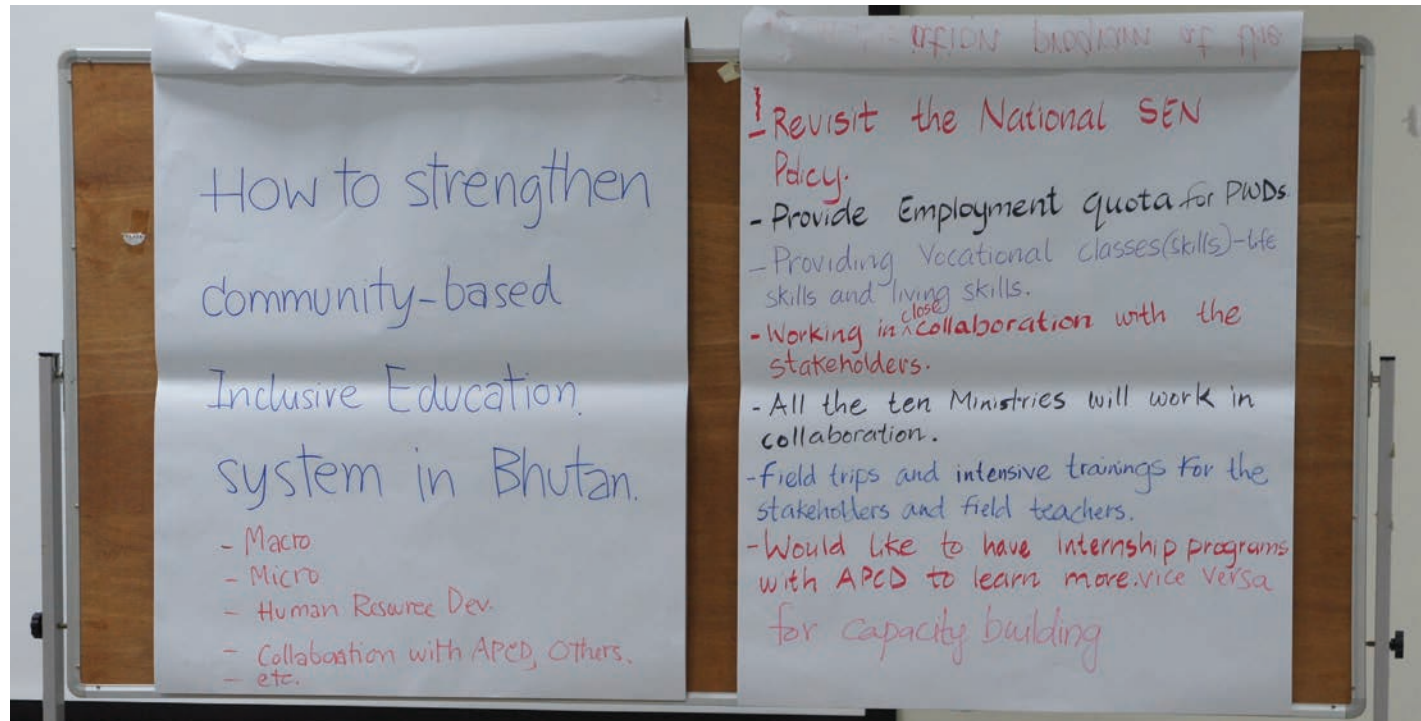 How to strengthen
community-based
Inclusive Education
system in Bhutan.
- Macro
- Micro
- Human Resource Dev.
- Collaboation with APCD, Others.
- etc.
1 Revisit the National SEN
Policy.
- Provide Employment quota for PWDs
- Providing Vocational classes(skills)-life
skills and living skills.
- Working in close collaboration with the
stakeholders.
- All the ten Ministries will work in
collaboration.
- Field trips and intensive trainings for the
stakeholders and field teachers.
- Would like to have internship programs
with APCD to learn more. vice versa
for capacity building